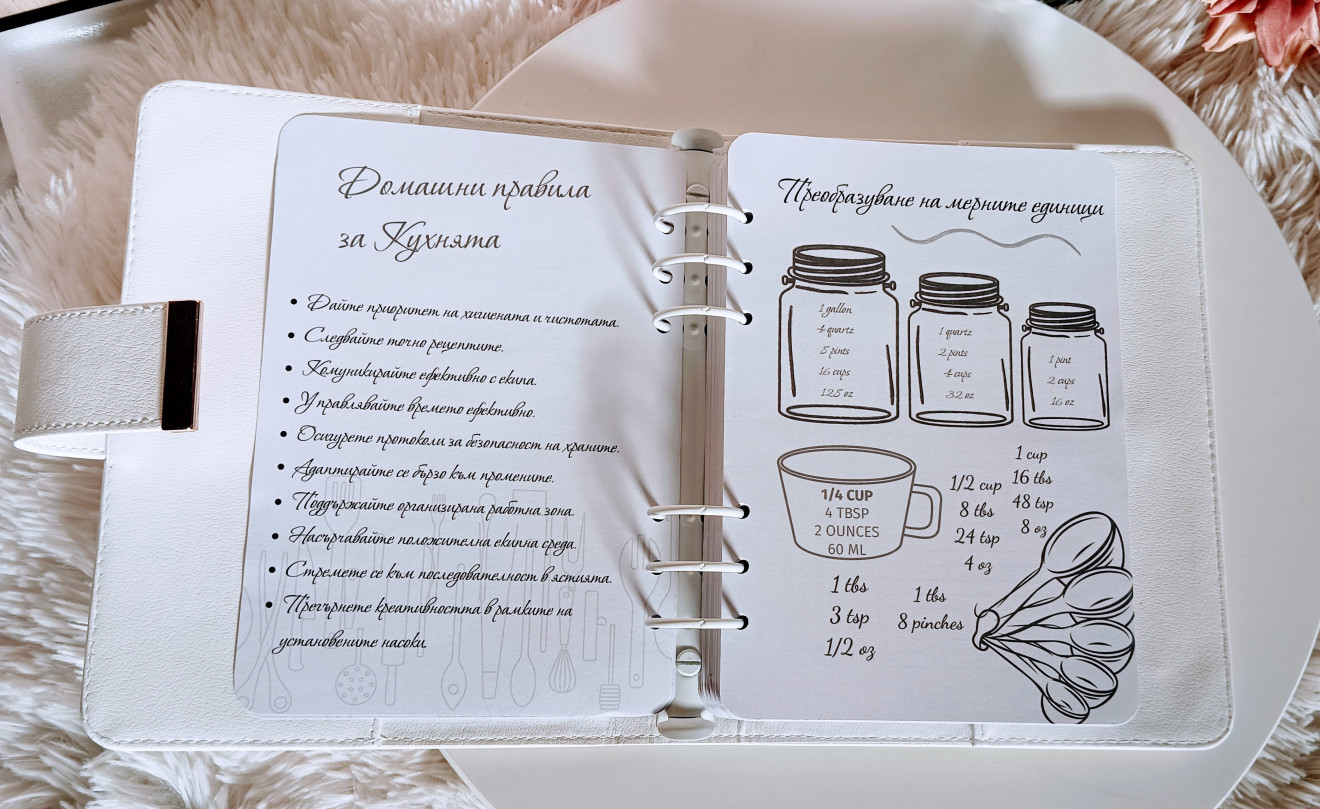 Домашни правила
за Кухнята
• Дайте приоритет на хигиената и чистотата.
• Следвайте точно рецептите.
• Комуникирайте ефективно с екипа.
• Управлявайте времето ефективно.
• Осигурете протоколи за безопасност на храните.
• Адаптирайте се бързо към промените.
• Поддържайте организирана работна зона.
• Насърчавайте положителна екипна среда.
• Стремете се към последователност в ястията.
• Прегърнете креативността в рамките на
установените насоки.
Преобразуване на мерните единици
1 gallon
4 quartz
8 pints
16 cups
128 oz
1 quartz
2 pints
4 cups
32 oz
1 pint
2 cups
16 oz
1/4 CUP
4 TBSP
2 OUNCES
60 ML
1/2 cup
8 tbs
24 tsp
4 oz
1 cup
16 tbs
48 tsp
8 oz
1 tbs
3 tsp
1/2 oz
1 tbs
8 pinches